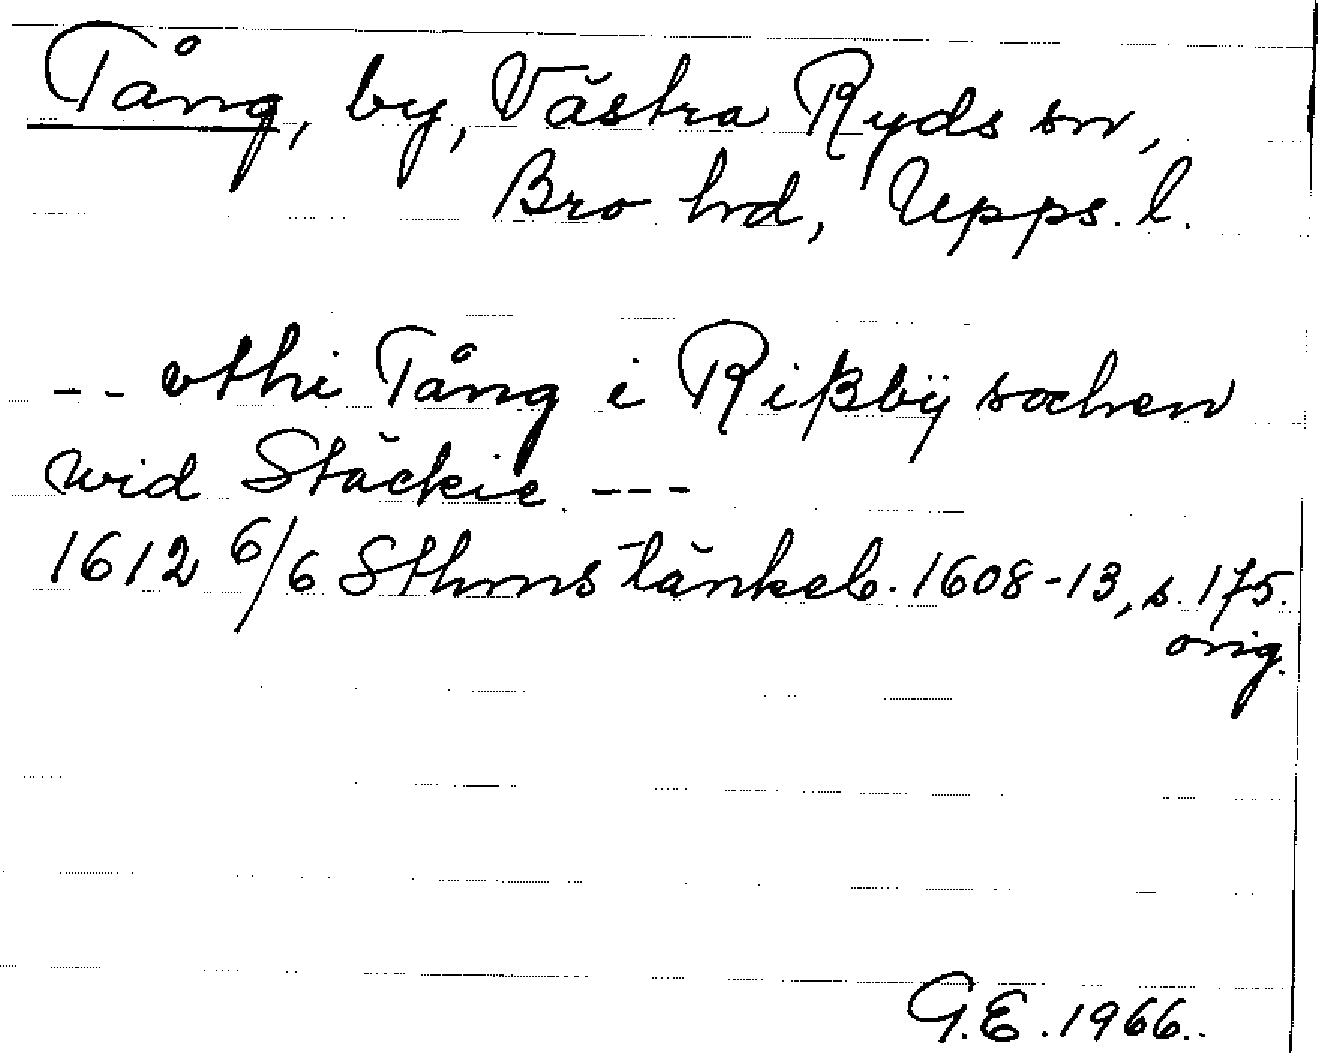 Tång, by, Västra Ryds sn,
Bro hd, Upps. l.
-- vthi Tång i Rißbÿ sochen
wid Stäckie ---
1612 6/6 Sthms tänkeb. 1608-13, s. 175.
orig.
G.E. 1966.